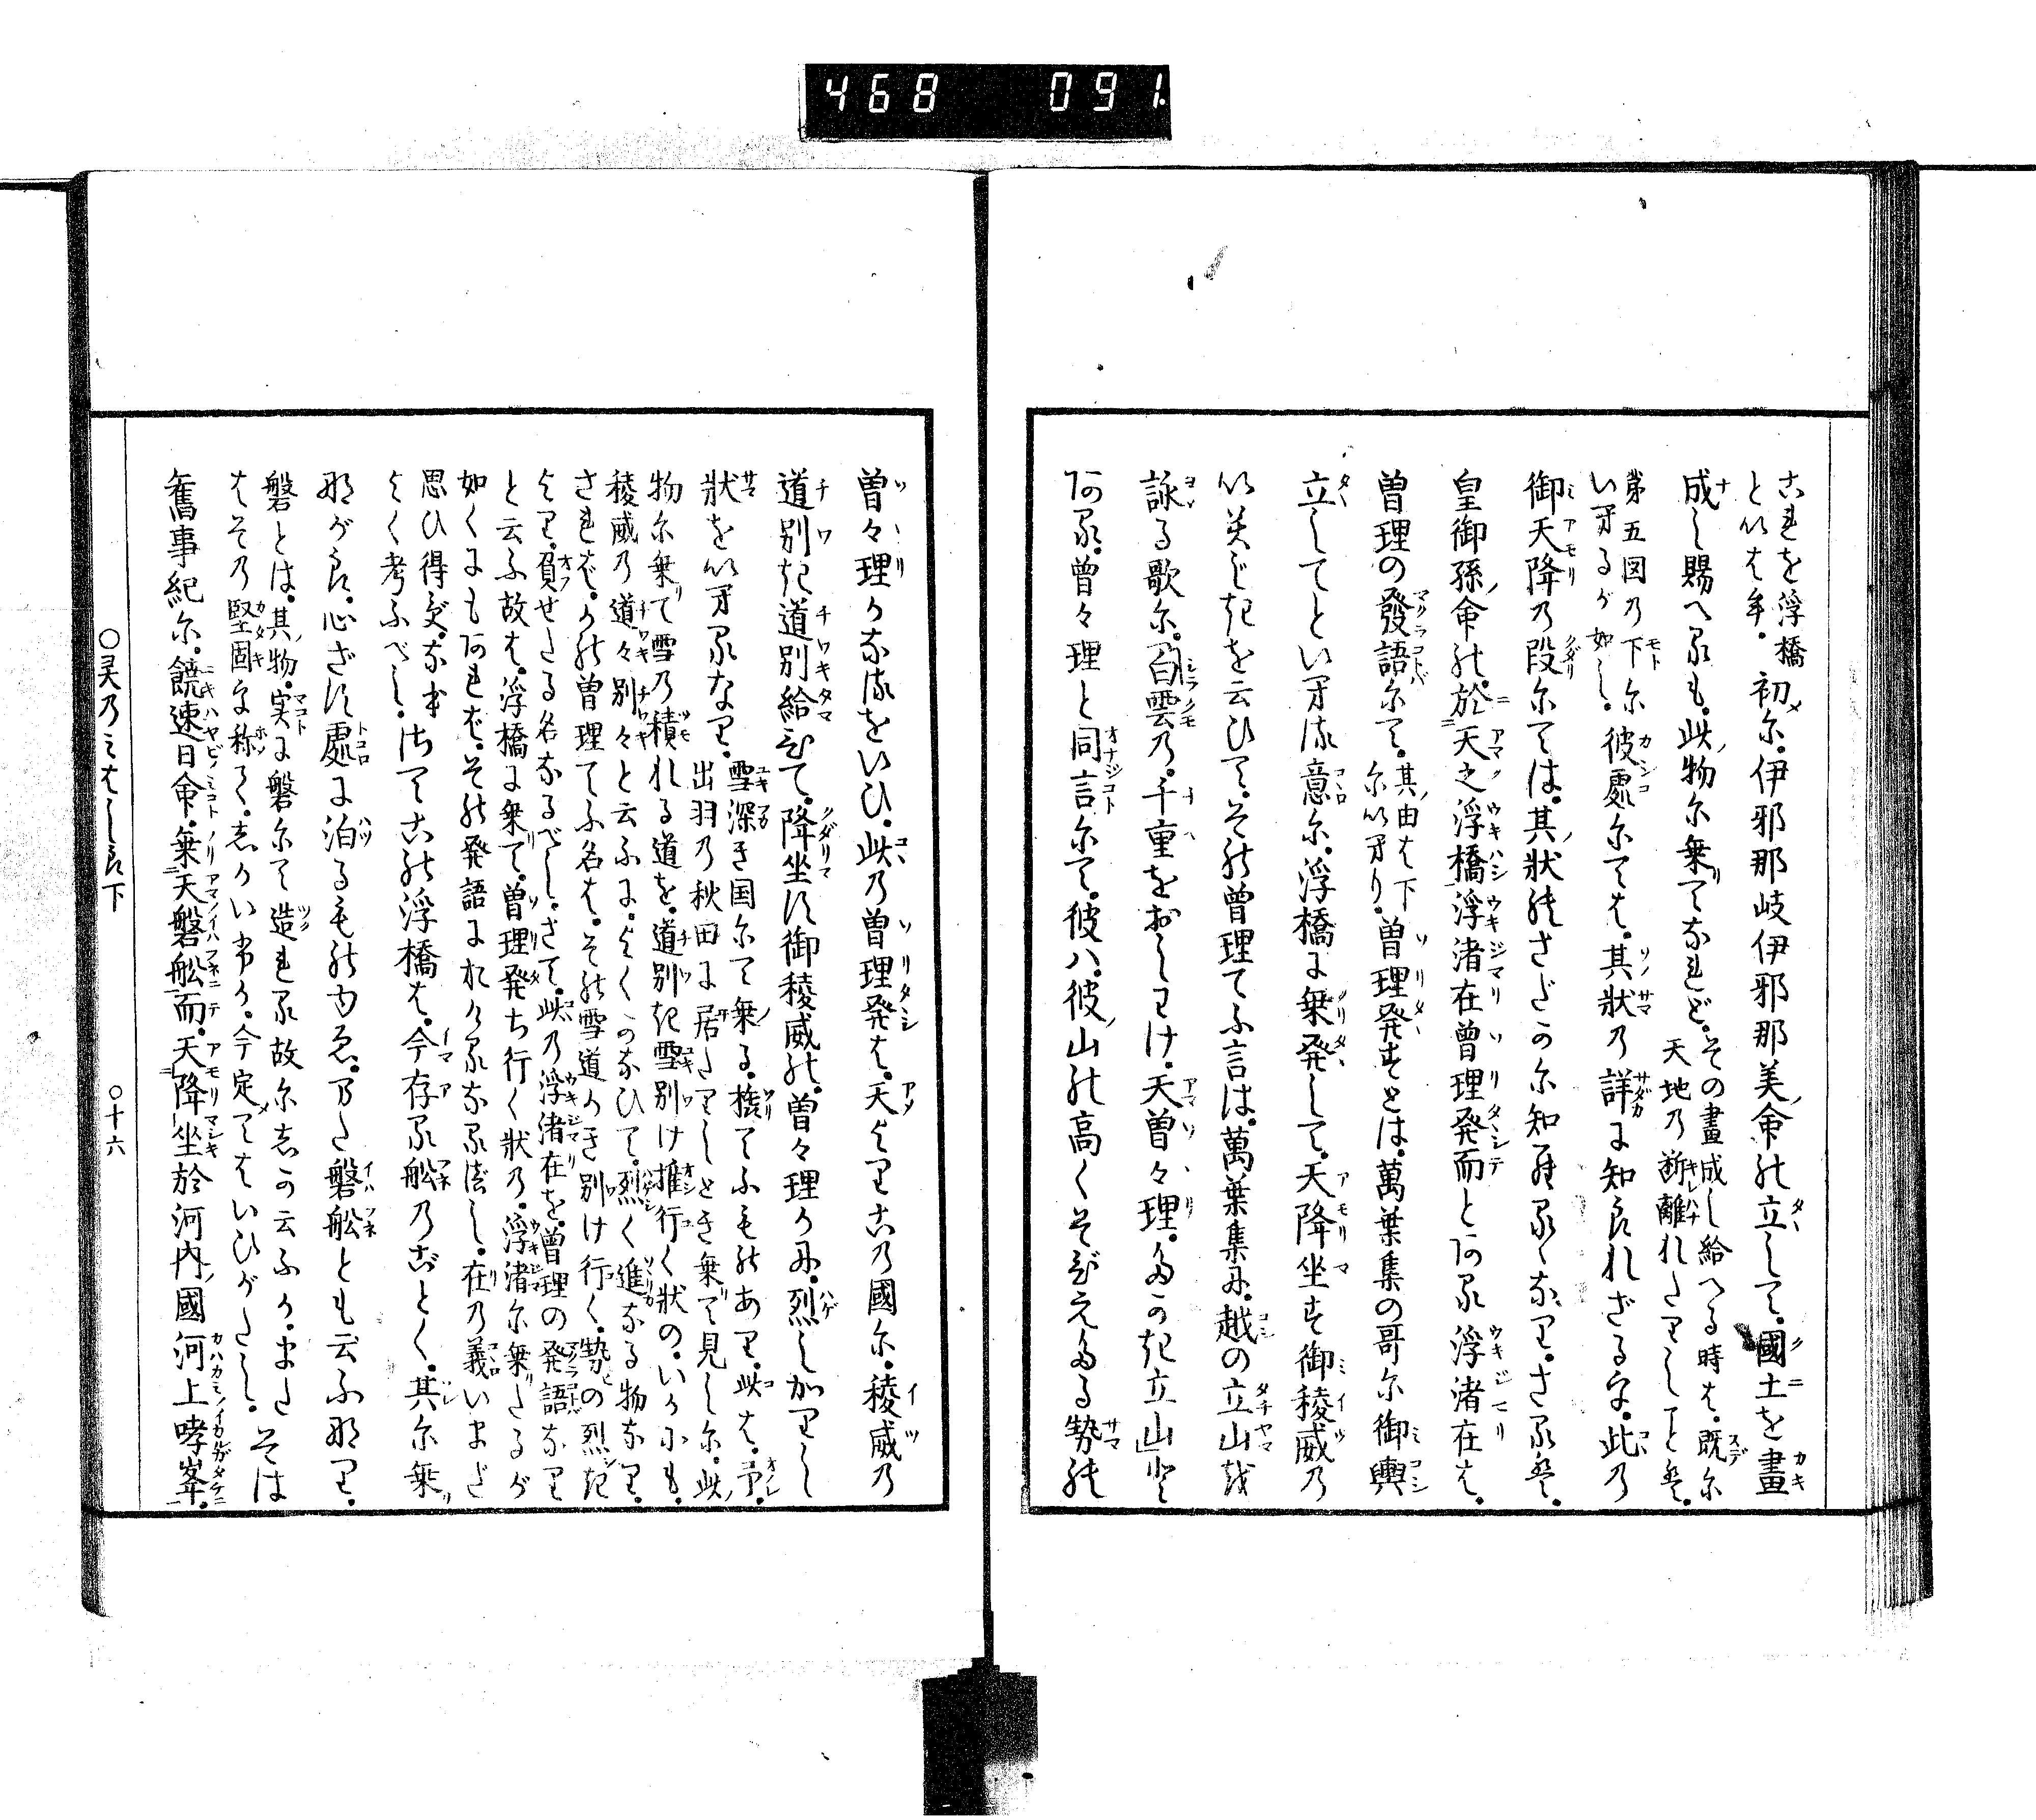 468 091
これを浮橋
といはむ。初に。伊邪那岐伊邪那美命の立して。國土を畫
成し賜へるも。此物に乗てなれど。その畫成し給へる時は。既に
天地の断離れたりしと見え。
第五図の下に
いへるが如し。彼處にては。其狀の詳に知られざるを。此の
御天降の段にては。其狀のさだかに知らるゝなり。さるは。
皇御孫命の。於天之浮橋浮渚在曾理発而とある浮渚在は。
曾理の發語にて。其由は下
にいへり。曾理発すとは。萬葉集の哥に御輿
立してといへる意に。浮橋に乗発して。天降坐す御稜威の
いみじきを云ひて。その曾理てふ言は。萬葉集に。越の立山を
詠る歌に。白雲の。千重をおしわけ。天曾々理。たかき立山と
ある。曾々理と同言にて。彼ハ。彼山の高くそびえたる勢の
曽々理かなるをいひ。此の曽理発は。天よりこの國に。稜威の
道別き道別給ひて。降坐す御稜威の。曽々理かに。烈しかりし
狀をいへるなり。雪深き国にて乗る。橇てふものあり。此は。予。
出羽の秋田に居たりしとき乗て見しに。此
物に乗て雪の積れる道を。道別き雪別け推行く狀の。いかにも。
稜威の道々別々と云ふに。よくかなひて。烈く進なる物なり。
されば。かの曽理てふ名は。その雪道のき別け行く。勢の烈き
より。負せたる名なるべし。さて。此の浮渚在を。曽理の発語なり
と云ふ故は。浮橋に乗て。曽理発ち行く狀の。浮渚に乗たるが
如くにもあれば。その発語におけるなるべし。在の義いまだ
思ひ得ず。なほ
よく考ふべし。さてこの浮橋は。今存る舩のごとく。其に乗
ながら。心ざす處に泊るものゆゑ。乃た磐舩とも云ふなり。
磐とは。其物。実に磐にて造れる故にしか云ふか。また
はその堅固を称て。しかいへるか。今定めてはいひがたし。そは
舊事紀に。饒速日命。乗天磐舩而。天降坐於河内國河上哮峯。
○灵乃みはしら下 ○十六